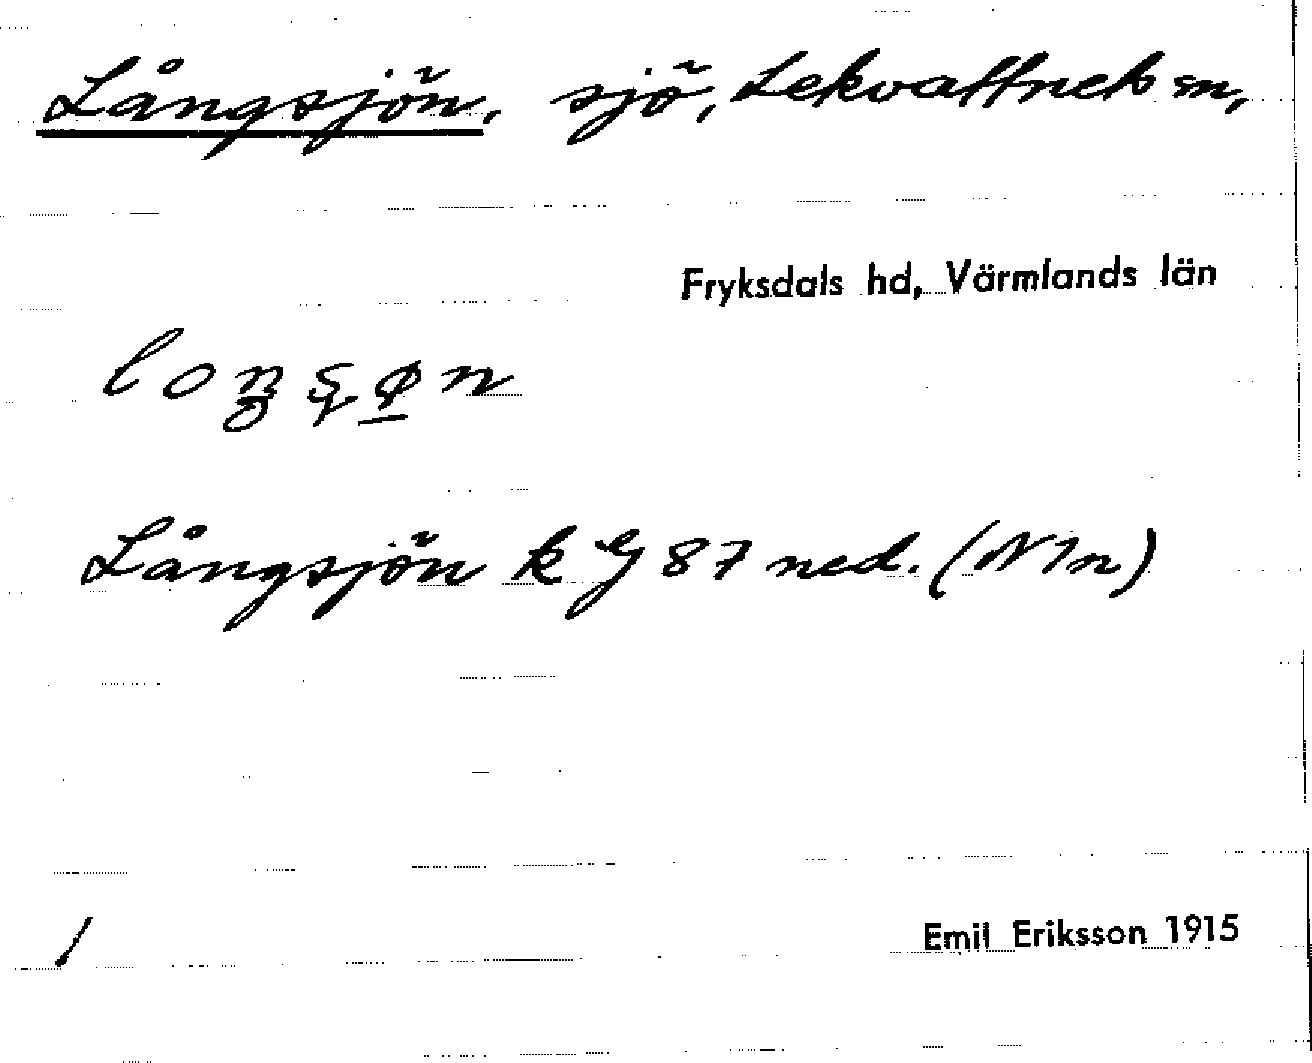 Långsjön, sjö, Lekvattnets sn,
Fryksdals hd, Värmlands län
Långsjön k G 87 ned. (N1n)
/
Emil Eriksson 1915